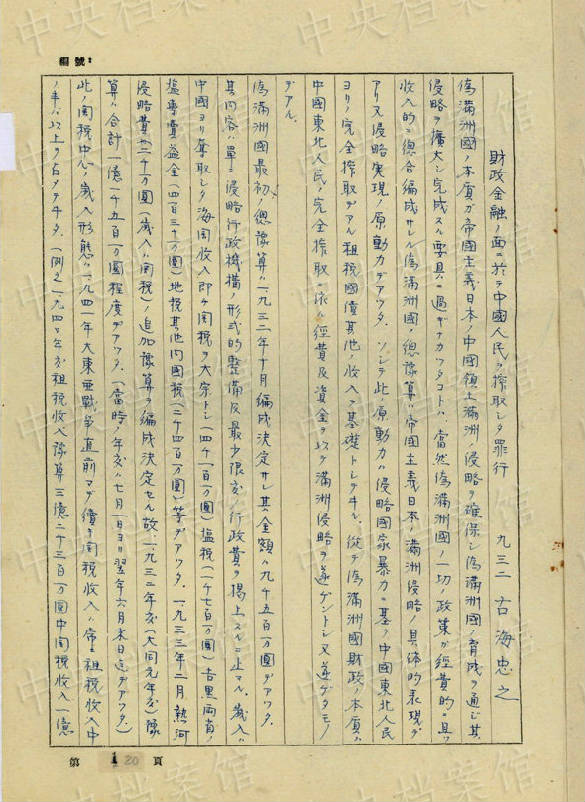 編號:
財政金融ノ面ニ於テ中國人民ヲ搾取シタ罪行 九三二 古海忠之
偽滿洲國ノ本質ガ帝國主義日本ノ中國領土滿洲ノ侵略ヲ確保シ偽滿洲國ノ育成ヲ通ジ其
侵略ヲ擴大シ完成スル要具ニ過ギナカツタコトハ當然偽滿洲國ノ一切ノ政策ガ經費的ニ且ツ
收入的ニ總合編成サレル偽滿洲國ノ總豫算ハ帝國主義日本ノ滿洲侵略ノ具体的表現デ
アリ又侵略実現ノ原動力デアツタ。ソシテ此ノ原動力ハ侵略國家暴力ニ基ク中國東北人民
ヨリノ完全搾取デアル租税國債其他ノ收入ヲ基礎トシテヰル。從テ偽滿洲國財政ノ本質ハ
中國東北人民ノ完全搾取ニ依ル經費及資金ヲ以テ滿洲侵略ヲ遂ゲントシ又遂ゲタモノ
デアル。
偽滿洲國最初ノ總豫算ハ一九三二年十月編成決定サレ其金額ハ九千五百万圓デアツタ。
其内容ハ單ニ侵略行政機構ノ形式的整備及最少限度ノ行政費ヲ揭上スルニ止マル、歲入ハ
中國ヨリ奪取シタ海関收入即チ関税ヲ大宗トシ(四千一百万圓)塩税(一千七百万圓)吉黒両省ノ
塩專賣益金(四百三十万圓)地税其他内國税(二千四百万圓)等デアツタ。一九三三年二月熱河
侵略費ニ二千万圓(歲入ハ関税)ノ追加豫算ヲ編成決定セル故、一九三二年度(大同元年度)豫
算ハ合計一億一千五百万圓程度デアツタ。(當時ノ年度ハ七月一日ヨリ翌年六月末日迄デアツタ)
此ノ関税中心ノ歲入形態ハ一九四一年大東亜戰爭直前マデ續キ関税收入ハ常ニ租税收入中
ノ半以上ヲ占メテヰタ。(例之一九四〇年度租税收入豫算三億二千三百万圓中関税收入一億
第 1 20 頁
中央档案馆